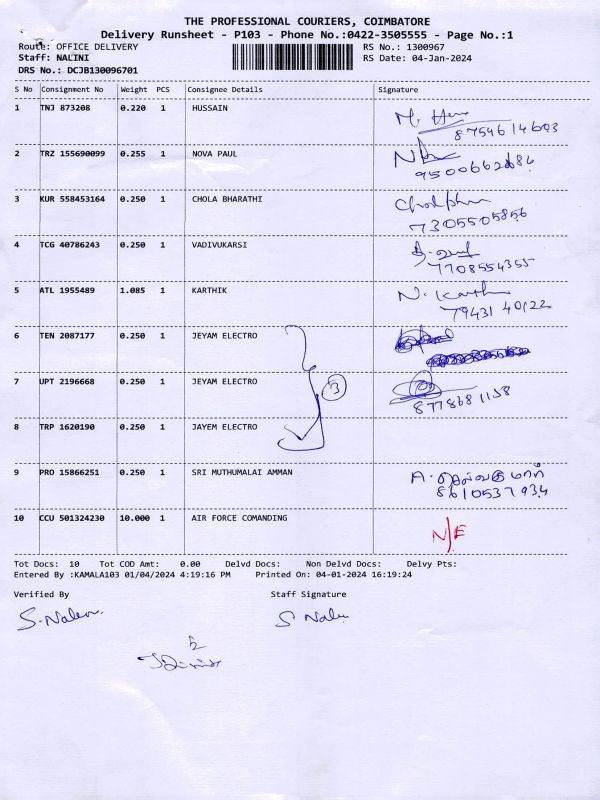 THE PROFESSIONAL COURIERS, COIMBATORE
Delivery Runsheet - P103 - Phone No.:0422-3505555 - Page No.:1
Route: OFFICE DELIVERY RS No.: 1300967
Staff: NALINI RS Date: 04-Jan-2024
DRS No.: DCJB130096701
S No Consignment No Weight PCS Consignee Details Signature
1 TNJ 873208 0.220 1 HUSSAIN
8754614603
2 TRZ 155690099 0.255 1 NOVA PAUL
3 KUR 558453164 0.250 1 CHOLA BHARATHI
7305505856
4 TCG 40786243 0.250 1 VADIVUKARSI
7708554355
5 ATL 1955489 1.085 1 KARTHIK N. Karthi
79431 40122
6 TEN 2087177 0.250 1 JEYAM ELECTRO
7 UPT 2196668 0.250 1 JEYAM ELECTRO 3
8 TRP 1620190 0.250 1 JAYEM ELECTRO
9 PRO 15866251 0.250 1 SRI MUTHUMALAI AMMAN A. செல்வகுமார்
8610537934
10 CCU 501324230 10.000 1 AIR FORCE COMANDING N/E
Tot Docs: 10 Tot COD Amt: 0.00 Delvd Docs: Non Delvd Docs: Delvy Pts:
Entered By :KAMALA103 01/04/2024 4:19:16 PM Printed On: 04-01-2024 16:19:24
Verified By Staff Signature
S. Nalini S Nalini